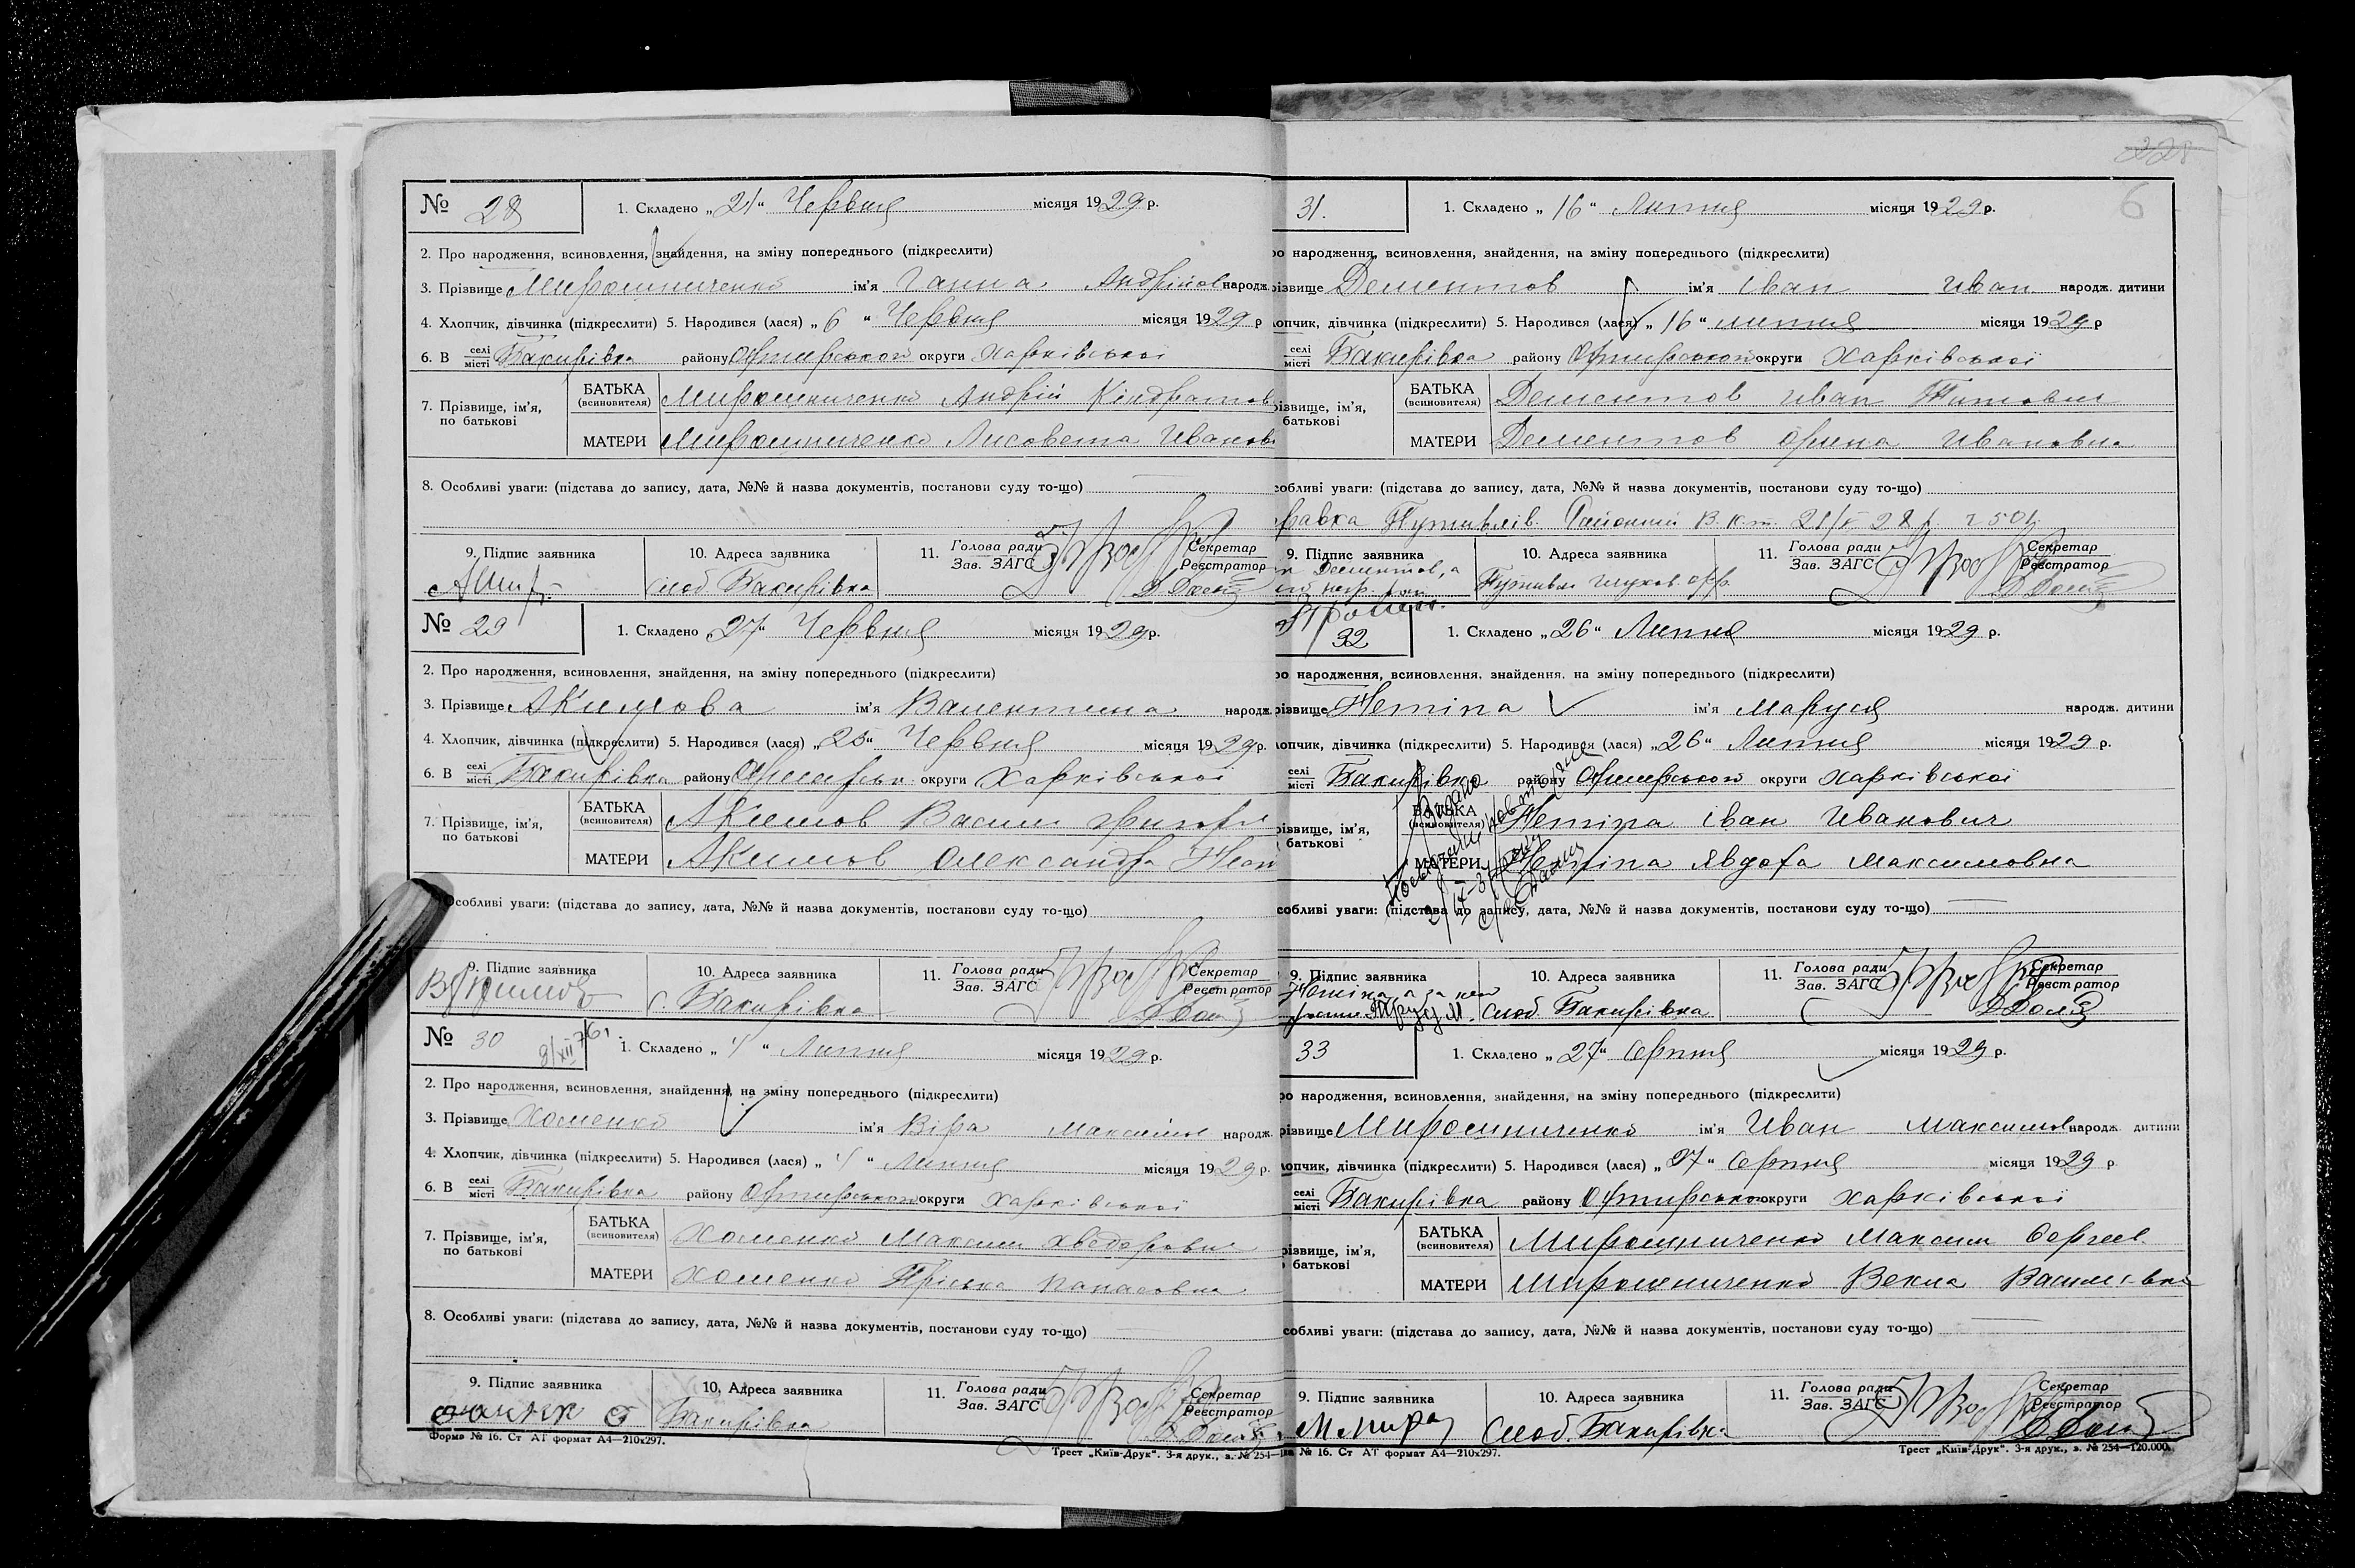 228
6
№ 28
1. Складено „21“ Червня місяця 1929 р.
2. Про народження, всиновлення, знайдення, на зміну попереднього (підкреслити)
3. Прізвище Мирошниченко ім'я Ганна Андріїов народж.
4. Хлопчик, дівчинка (підкреслити) 5. Народився (лася) „6“ Червня місяця 1929 р
6. В селі місті Бакирівка району Охтирського округи Харківської
7. Прізвище, ім'я, по батькові
БАТЬКА (всиновителя) Мирошниченко Андрій Кіндратов
МАТЕРИ Мирошниченко Лисовета Иванов
8. Особливі уваги: (підстава до запису, дата, №№ й назва документів, постанови суду то-що)
9. Підпис заявника
10. Адреса заявника слоб. Бакирівка
11. Голова ради Зав. ЗАГС
Секретар Реєстратор
№ 29
1. Складено „27“ Червня місяця 1929 р.
2. Про народження, всиновлення, знайдення, на зміну попереднього (підкреслити)
3. Прізвище Акимова ім'я Валентина народж.
4. Хлопчик, дівчинка (підкреслити) 5. Народився (лася) „25“ Червня місяця 1929 р.
6. В селі місті Бакирівка району Охтирськ округи Харківської
7. Прізвище, ім'я, по батькові
БАТЬКА (всиновителя) Акимов Васил
МАТЕРИ Акимов Олександра
Особливі уваги: (підстава до запису, дата, №№ й назва документів, постанови суду то-що)
9. Підпис заявника
10. Адреса заявника с. Бакирівка
11. Голова ради Зав. ЗАГС
Секретар Реєстратор
№ 30
1. Складено „4“ Липня місяця 1929 р.
2. Про народження, всиновлення, знайдення, на зміну попереднього (підкреслити)
3. Прізвище Хоменко ім'я Віра Максимов народж.
4. Хлопчик, дівчинка (підкреслити) 5. Народився (лася) „4“ Липня місяця 1929 р.
6. В селі місті Бакирівка району Охтирського округи Харківської
7. Прізвище, ім'я, по батькові
БАТЬКА (всиновителя) Хоменко Максим Хведорович
МАТЕРИ Хоменко Пріська Панасовна
8. Особливі уваги: (підстава до запису, дата, №№ й назва документів, постанови суду то-що)
9. Підпис заявника
10. Адреса заявника Бакирівка
11. Голова ради Зав. ЗАГС
Секретар Реєстратор
Форма № 16. Ст АТ формат А4—210х297.
Трест „Київ-Друк“. 3-я друк., з. № 254—
31.
1. Складено „16“ Липня місяця 1929 р.
ро народження, всиновлення, знайдення, на зміну попереднього (підкреслити)
різвище Дементов ім'я Іван Иван народж. дитини
лопчик, дівчинка (підкреслити) 5. Народився (лася) „16“ липня місяця 1929 р
селі місті Бакирівка району Охтирського округи Харківської
різвище, ім'я, батькові
БАТЬКА (всиновителя) Дементов Иван Титович
МАТЕРИ Дементов Орина Ивановна
собливі уваги: (підстава до запису, дата, №№ й назва документів, постанови суду то-що)
9. Підпис заявника
10. Адреса заявника Путивль Глухов. окр.
11. Голова ради Зав. ЗАГС
Секретар Реєстратор
32
1. Складено „26“ Липня місяця 1929 р.
ро народження, всиновлення, знайдення, на зміну попереднього (підкреслити)
різвище Нетіпа ім'я Маруся народж. дитини
лопчик, дівчинка (підкреслити) 5. Народився (лася) „26“ Липня місяця 1929 р.
селі місті Бакирівка району Охтирського округи Харківської
різвище, ім'я, батькові
БАТЬКА (всиновителя) Нетіпа Іван Иванович
МАТЕРИ Нетіпа Явдоха Максимовна
собливі уваги: (підстава до запису, дата, №№ й назва документів, постанови суду то-що)
9. Підпис заявника
10. Адреса заявника Слоб. Бакирівка
11. Голова ради Зав. ЗАГС
Секретар Реєстратор
33
1. Складено „27“ Серпня місяця 1929 р.
ро народження, всиновлення, знайдення, на зміну попереднього (підкреслити)
різвище Мирошниченко ім'я Иван Максимов народж. дитини
лопчик, дівчинка (підкреслити) 5. Народився (лася) „27“ Серпня місяця 1929 р
селі місті Бакирівка району Охтирського округи Харківської
різвище, ім'я, батькові
БАТЬКА (всиновителя) Мирошниченко Максим Сергеев.
МАТЕРИ Мирошниченко Векла Василівна
собливі уваги: (підстава до запису, дата, №№ й назва документів, постанови суду то-що)
9. Підпис заявника
10. Адреса заявника Слоб. Бакирівка
11. Голова ради Зав. ЗАГС
Секретар Реєстратор
№ 16. Ст АТ формат А4—210х297.
Трест „Київ-Друк“. 3-я друк., з. № 254—120.000.